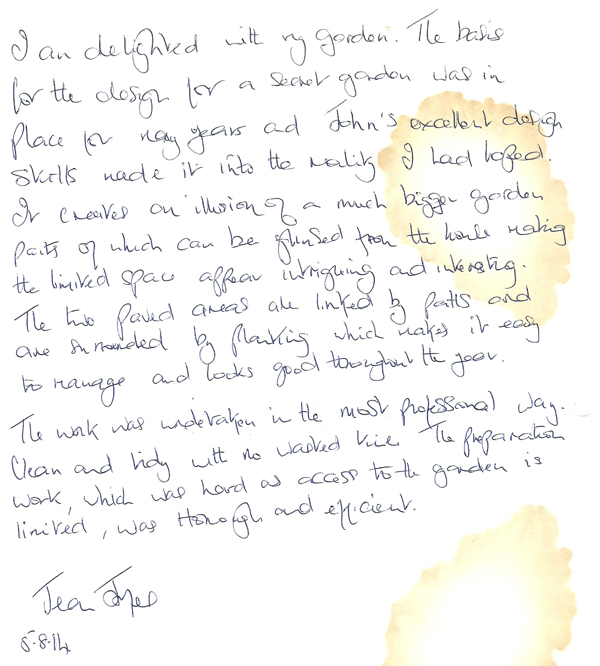 I am delighted with my garden. The basis
for the design for a secret garden was in
place for many years and John's excellent design
skills made it into the reality I had hoped.
It creates an illusion of a much bigger garden
parts of which can be glimpsed from the house making
the limited space appear intriguing and interesting.
The two paved areas are linked by paths and
are surrounded by planting which makes it easy
to manage and looks good throughout the year.
The work was undertaken in the most professional way.
Clean and tidy with no wasted time. The preparation
work, which was hard as access to the garden is
limited, was thorough and efficient.
Jean
5-8-14